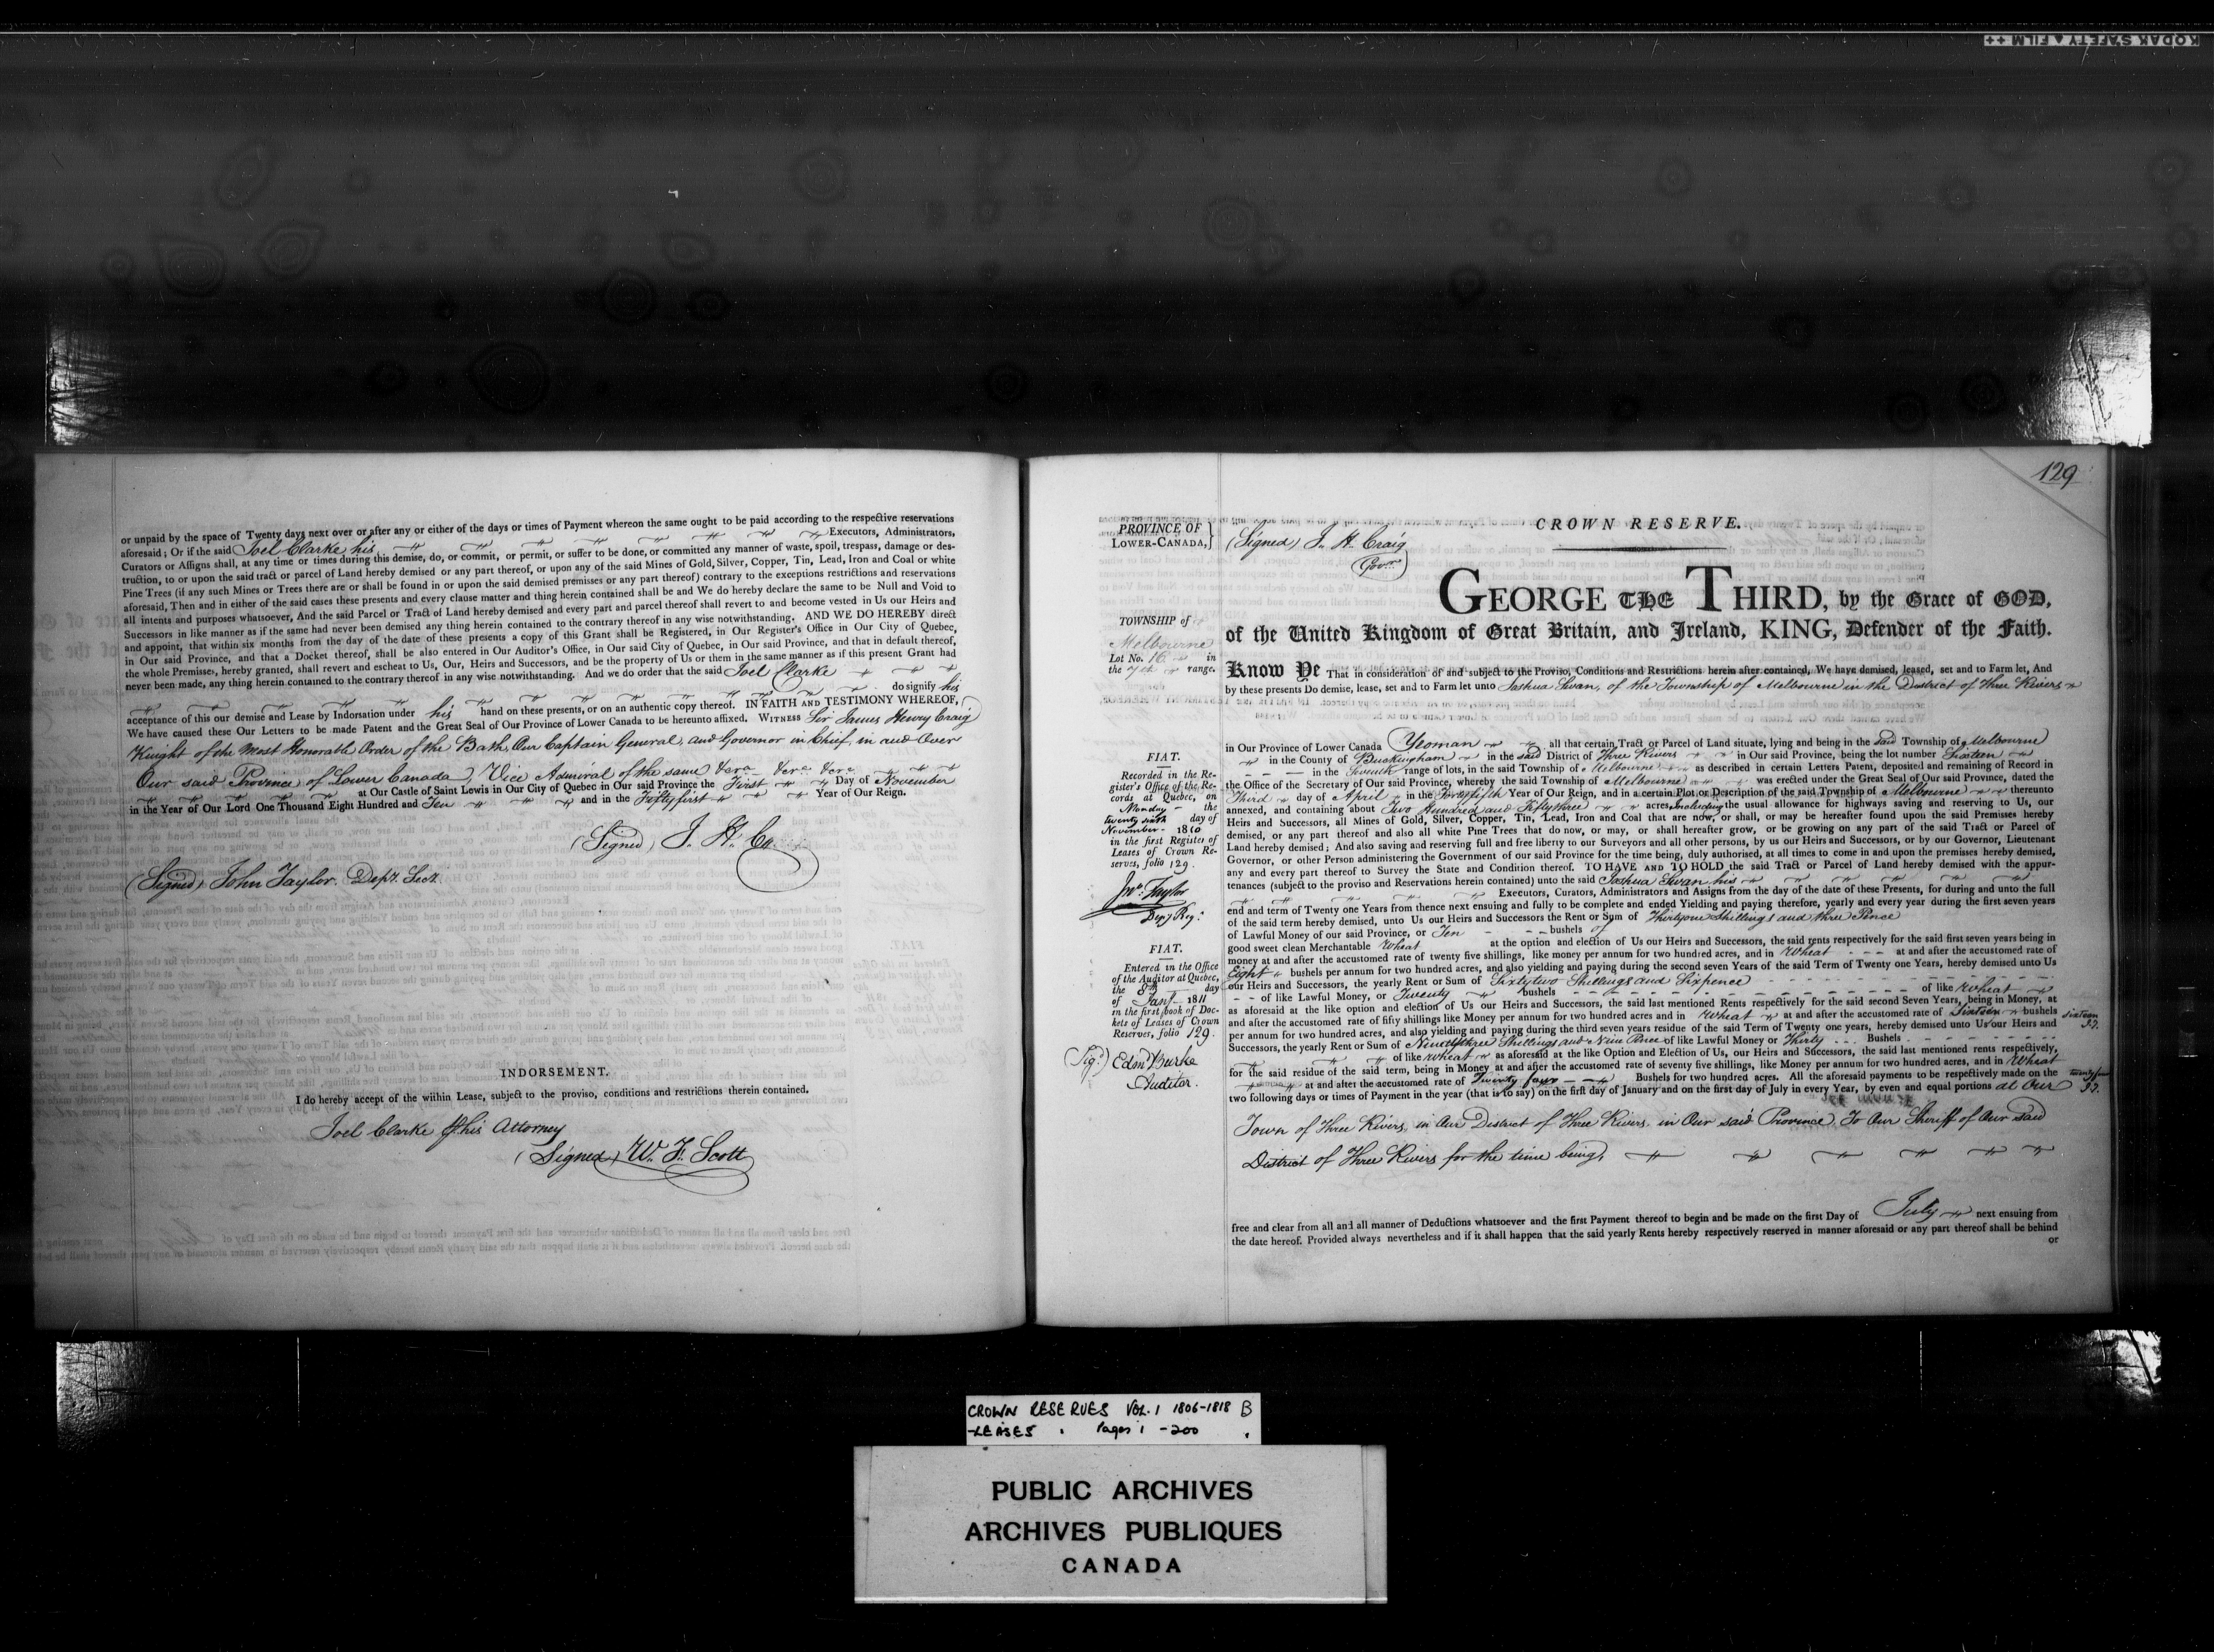 KODAK SAFETY FILM ++
or unpaid by the space of Twenty days next over or after any or either of the days or times of Payment whereon the same ought to be paid according to the respective reservations
aforesaid; Or if the said Joel Clarke his Executors, Administrators,
Curators or Assigns shall, at any time or times during this demise, do, or commit, or permit, or suffer to be done, or committed any manner of waste, spoil, trespass, damage or des-
truction, to or upon the said tract or parcel of Land hereby demised or any part thereof, or upon any of the said Mines of Gold, Silver, Copper, Tin, Lead, Iron and Coal or white
Pine Trees (if any such Mines or Trees there are or shall be found in or upon the said demised premises or any part thereof) contrary to the exceptions restrictions and reservations
aforesaid, Then and in either of the said cases these presents and every clause matter and thing herein contained shall be and We do hereby declare the same to be Null and Void to
all intents and purposes whatsoever, And the said Parcel or Tract of Land hereby demised and every part and parcel thereof shall revert to and become vested in Us our Heirs and
Successors in like manner as if the same had never been demised any thing herein contained to the contrary thereof in any wise notwithstanding. AND WE DO HEREBY direct
and appoint, that within six months from the day of the date of these presents a copy of this Grant shall be Registered, in Our Register's Office in Our City of Quebec,
in Our said Province, and that a Docket thereof, shall be also entered in Our Auditor's Office, in Our said City of Quebec, in Our said Province, and that in default thereof,
the whole Premises, hereby granted, shall revert and escheat to Us, Our, Heirs and Successors, and be the property of Us or them in the same manner as if this present Grant had
never been made, any thing herein contained to the contrary thereof in any wise notwithstanding. And we do order that the said Joel Clarke
do signify his
acceptance of this our demise and Lease by Indorsation under his hand on these presents, or on an authentic copy thereof. IN FAITH AND TESTIMONY WHEREOF,
We have caused these Our Letters to be made Patent and the Great Seal of Our Province of Lower Canada to be hereunto affixed. WITNESS Sir James Henry Craig
Knight of the Most Honorable Order of the Bath, Our Captain General, and Governor in Chief, in and Over
Our said Province of Lower Canada, Vice Admiral of the same &c.ra &c.ra &c.ra
at Our Castle of Saint Lewis in Our City of Quebec in Our said Province the First Day of November
in the Year of Our Lord One Thousand Eight Hundred and Ten and in the Fiftyfirst Year of Our Reign.
(Signed) J. H. C
(Signed) John Taylor. Depy. Secy.
INDORSEMENT.
I do hereby accept of the wiihin Lease, subject to the proviso, conditions and restrictions therein contained.
Joel Clarke P his Attorney
(Signed) W. F. Scott
129
PROVINCE OF
LOWER-CANADA,
(Signed) J. H. Craig
Govr.
CROWN RESERVE.
GEORGE THE THIRD, by the Grace of GOD,
of the United Kingdom of Great Britain, and Ireland, KING, Defender of the Faith.
TOWNSHIP of
Melbourne
Lot No. 16 in
the 7th range.
Know Ye That in consideration of and subject to the Proviso, Conditions and Restrictions herein after contained, We have demised, leased, set and to Farm let, And
by these presents Do demise, lease, set and to Farm let unto Joshua Swan, of the Township of Melbourne in the District of Three Rivers
in Our Province of Lower Canada Yeoman all that certain Tract or Parcel of Land situate, lying and being in the said Township of Melbourne
in the County of Buckingham in the said District of Three Rivers in Our said Province, being the lot number Sixteen
in the Seventh range of lots, in the said Township of Melbourne as described in certain Letters Patent, deposited and remaining of Record in
the Office of the Secretary of Our said Province, whereby the said Township of Melbourne was erected under the Great Seal of Our said Province, dated the
Third day of April in the Fortyfifth Year of Our Reign, and in a certain Plot or Description of the said Township of Melbourne thereunto
annexed, and containing about Two Hundred and Fiftythree acres, Including the usual allowance for highways saving and reserving to Us, our
Heirs and Successors, all Mines of Gold, Silver, Copper, Tin, Lead, Iron and Coal that are now, or shall, or may be hereafter found upon the said Premises hereby
demised, or any part thereof and also all white Pine Trees that do now, or may, or shall hereafter grow, or be growing on any part of the said Tract or Parcel of
Land hereby demised; And also saving and reserving full and free liberty to our Surveyors and all other persons, by us our Heirs and Successors, or by our Governor, Lieutenant
Governor, or other Person administering the Government of our said Province for the time being, duly authorised, at all times to come in and upon the premises hereby demised,
any and every part thereof to Survey the State and Condition thereof. TO HAVE AND TO HOLD the said Tract or Parcel of Land hereby demised with the appur-
tenances (subject to the proviso and Reservations herein contained) unto the said Joshua Swan his
Executors, Curators, Administrators and Assigns from the day of the date of these Presents, for during and unto the full
end and term of Twenty one Years from thence next ensuing and fully to be complete and ended Yielding and paying therefore, yearly and every year during the first seven years
of the said term hereby demised, unto Us our Heirs and Successors the Rent or Sum of Thirtyone Shillings and three Pence
of Lawful Money of our said Province, or Ten bushels of
good sweet clean Merchantable Wheat at the option and election of Us our Heirs and Successors, the said rents respectively for the said first seven years being in
money at and after the accustomed rate of twenty five shillings, like money per annum for two hundred acres, and in Wheat at and after the accustomed rate of
Eight bushels per annum for two hundred acres, and also yielding and paying during the second seven Years of the said Term of Twenty one Years, hereby demised unto Us
our Heirs and Successors, the yearly Rent or Sum of Sixtytwo Shillings and Sixpence
of like Lawful Money, or Twenty bushels of like Wheat
as aforesaid at the option and election of Us our Heirs and Successors, the said last mentioned Rents respectively for the said second Seven Years, being in Money, at
and after the accustomed rate of fifty shillings like Money per annum for two hundred acres and in Wheat at and after the accustomed rate of Sixteen bushels sixteen
per annum for two hundred acres, and also yielding and paying during the third seven years residue of the said Term of Twenty one years, hereby demised unto Us our Heirs and
Successors, the yearly Rent or Sum of Ninetythree Shillings and Nine Pence of like Lawful Money or Thirty Bushels
of like Wheat as aforesaid at the like Option and Election of Us, our Heirs and Successors, the said last mentioned rents respectively,
for the said residue of the said term, being in Money at and after the accustomed rate of seventy five shillings, like Money per annum for two hundred acres, and in Wheat
at and after the accustomed rate of Twenty four Bushels for two hundred acres. All the aforesaid payments to be respectively made on the twentyfour
two following days or times of Payment in the year (that is to say) on the first day of January and on the first day of July in every Year, by even and equal portions at Our
Town of Three Rivers, in Our District of Three Rivers in Our said Province, To Our Sheriff of Our said
District of Three Rivers for the time being,
free and clear from all and all manner of Deductions whatsoever and the first Payment thereof to begin and be made on the first Day of July next ensuing from
the date hereof. Provided always nevertheless and if it shall happen that the said yearly Rents hereby respectively reserved in manner aforesaid or any part thereof shall be behind
or
FIAT.
Recorded in the Re-
gister's Office of the Re-
cords at Quebec, on
Monday the
twenty sixth day of
November 1810
in the first Register of
Leases of Crown Re-
serves, folio 129.
Jno. Taylor
Depy Regr.
FIAT.
Entered in the Office
of the Auditor at Quebec,
the 8th day
of Jany 1811
in the first book of Doc-
kets of Leases of Crown
Reserves, folio 129.
Sigd.) Edmd Burke
Auditor.
CROWN RESERVES VOL. 1 1806-1818 B
-LEASES Pages 1 -200
PUBLIC ARCHIVES
ARCHIVES PUBLIQUES
CANADA